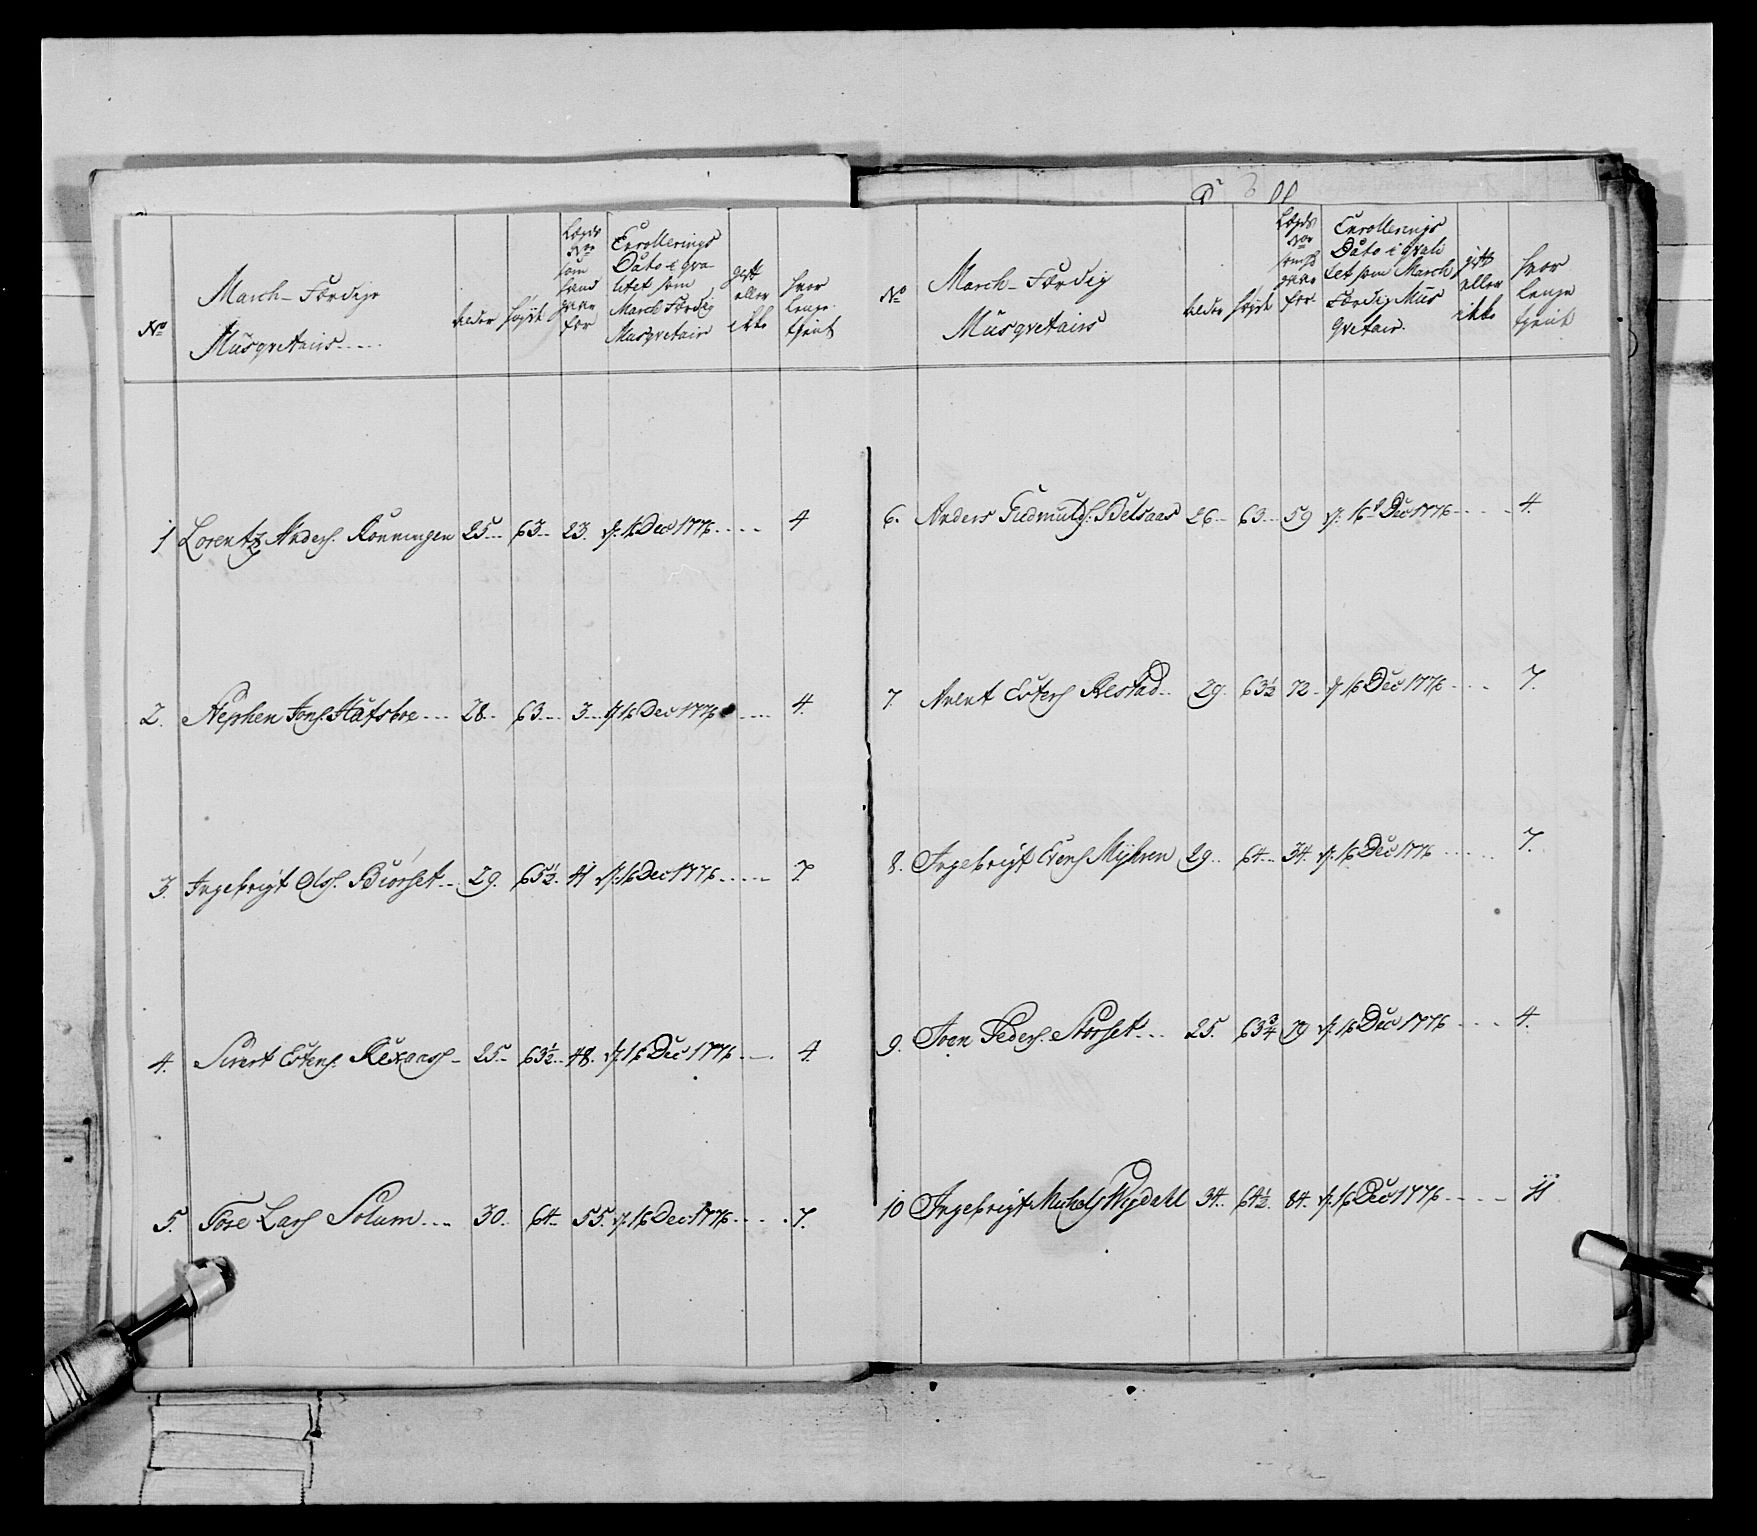 No
March-Færdige
Musqvetairs
alder
høyde
Lægds
No
som
hand
staar
for
Enrollerings
Dato i qva
litet som
March Færdig
Musqvetair
gift
eller
ikke
hvor
længe
tient
1 Lorentz Anders. Rønningen 25 63 23. d. 16 Dec 1776 4
2. Stephen Jons. 28 63 3 d. 16 Dec 1776 4.
3. Ingebrigt Ols. Biørset 29. 65½ 41 d. 16 Dec 1776 7
4. Sivert Estens. 25 63½ 48. d. 16 Dec 1776 4.
5. Tore Lars. Solum 30. 64 55. d. 16 Dec 1776 7.
No
March-Færdig
Musqvetairs
alder
høyde
Lægds
No
staar
for
Enrollerings
Dato i qvali
tet som March
Færdig Mus
qvetair.
gift
eller
ikke
hvor
længe
tient
6. Anders Gudmunds. 26 63 59 d. 16d Dec 1776 4.
7. Arent Estens. Restad 29. 63½ 72 d. 16 Dec 1776 7.
8. Ingebrigt Evens. Myhren 29 64 34 d. 16 Dec 1776 7.
9. Joen Peders. Storset 25. 63¾ 79 d. 16 Dec 1776 4.
10 Ingebrigt Michels. Wigdahl 34. 64½. 84. d. 16 Dec 1776 11